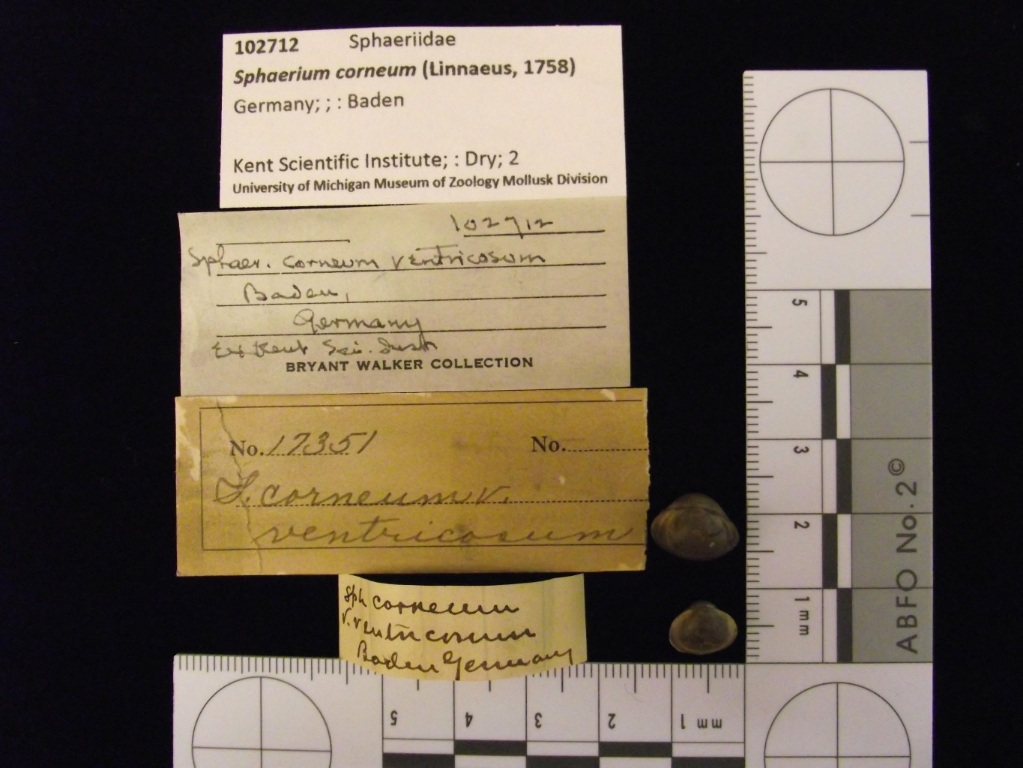 102712 Sphaeriidae
Sphaerium corneum (Linnaeus, 1758)
Germany; ; : Baden
Kent Scientific Institute; : Dry; 2
University of Michigan Museum of Zoology Mollusk Division
102712
Sphaer. corneum ventricosum
Baden,
Germany
Ex Kent Sci. Inst.
BRYANT WALKER COLLECTION
No. 17351 No.
S. corneum v.
ventricosum
Sph corneum
v. ventricosum
Baden Germany
5
4
3
2
1 mm
ABFO No. 2 ©
5 4 3 2 1 mm